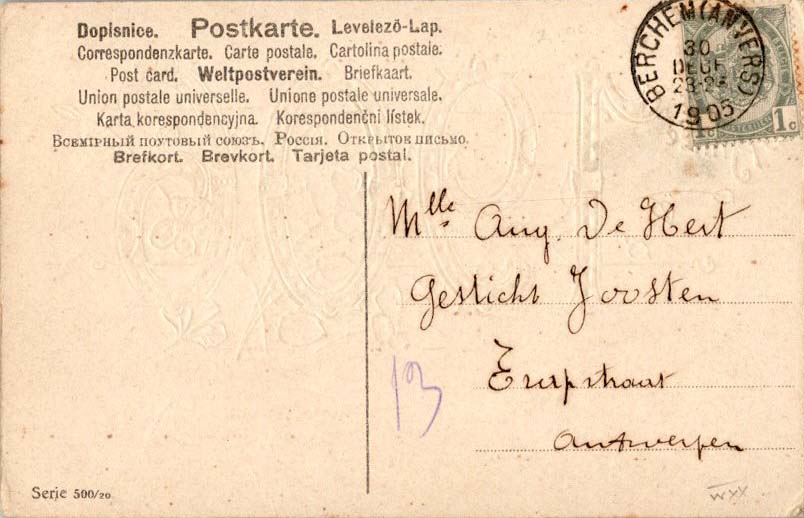 Dopisnice. Postkarte. Levelező-Lap.
Correspondenzkarte. Carte postale. Cartolina postale.
Post card. Weltpostverein. Briefkaart.
Union postale universelle. Unione postale universale.
Karta korespondencyjna. Korespondenční lístek.
Всемірный поутовый союзъ. Россія. Открыток письмо.
Brefkort. Brevkort. Tarjeta postal.
BERCHEM (ANVERS)
30
DECE
1905
1c 1c
Mlle Aug. De Hert
Gesticht Joosten
straat
Antwerpen
Serie 500/20